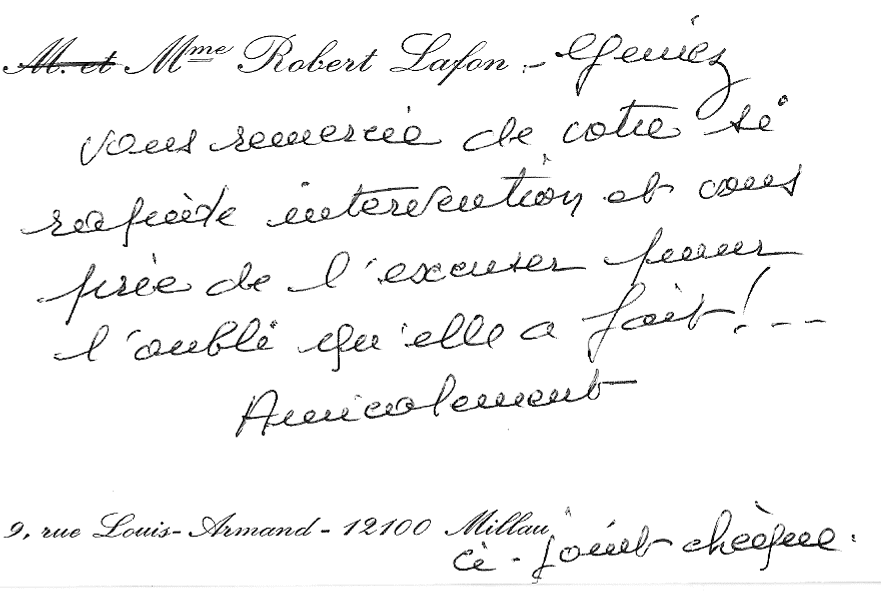 ~~M. et~~ Mme Robert Lafon :- Geniez
vous remercie de votre si
rapide intervention et vous
prie de l'excuser pour
l'oubli qu'elle a fait ! --
Amicalement
9, rue Louis-Armand - 12100 Millau
ci-joint chèque.